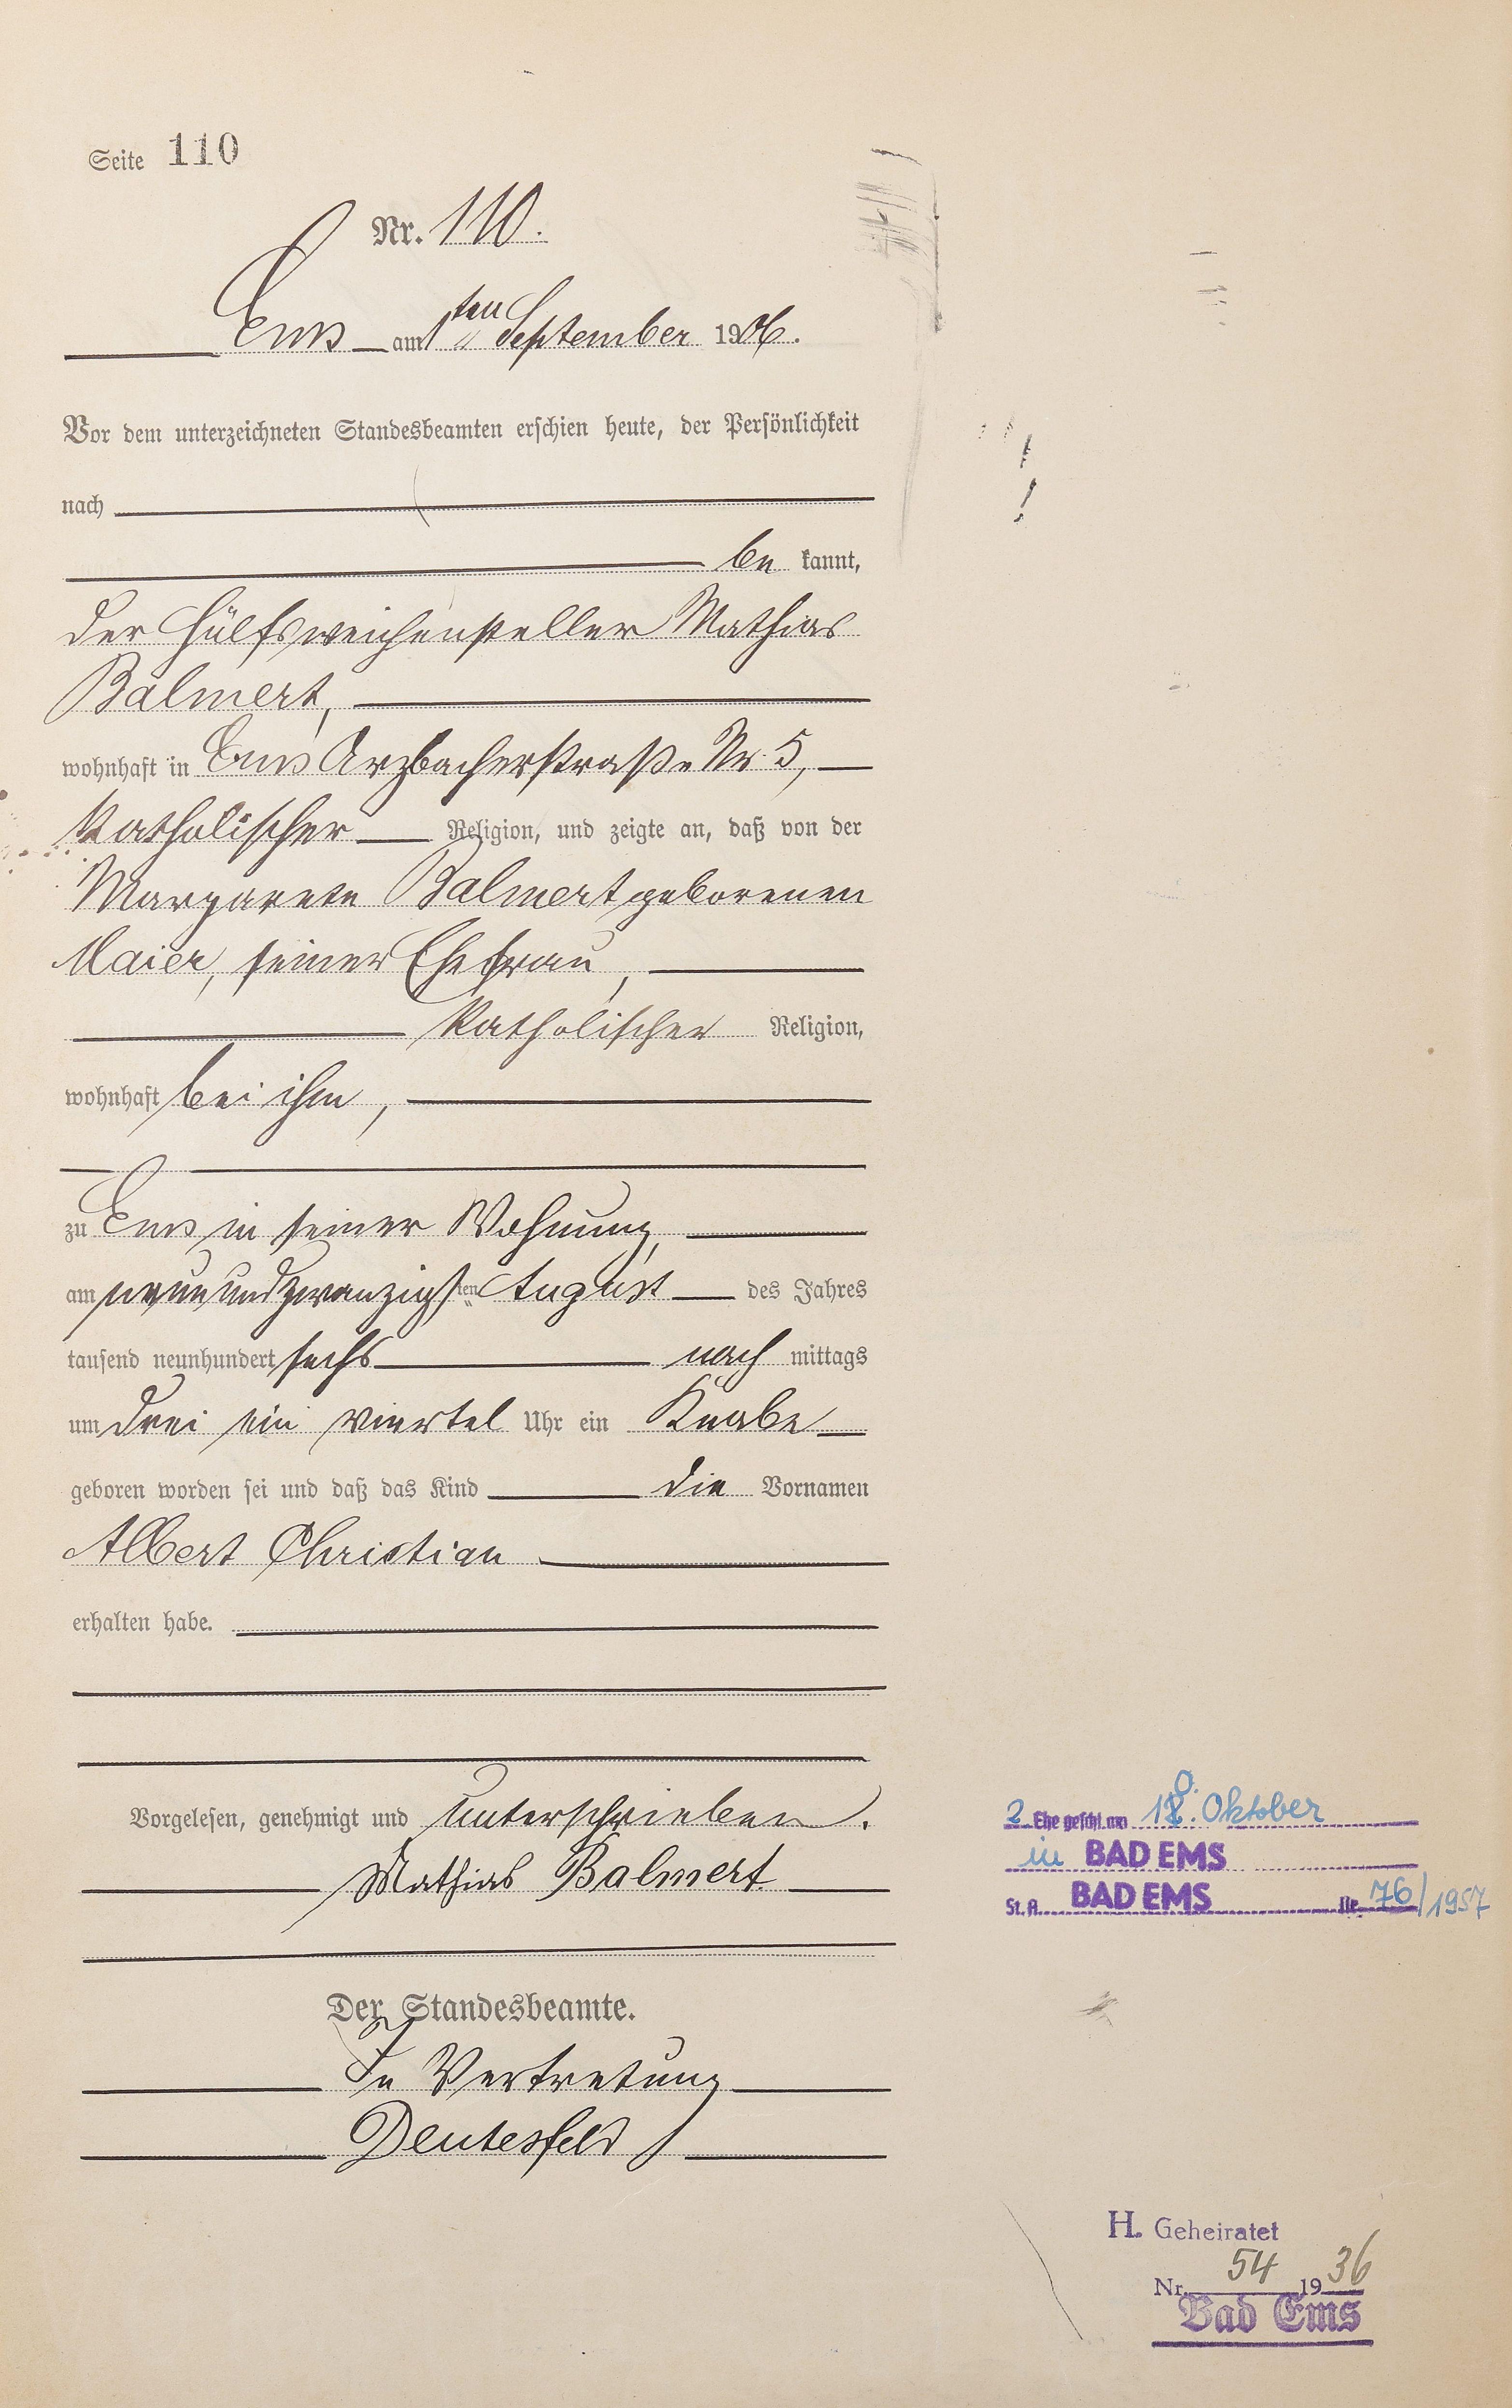 Seite 110
Nr. 110.
Ems am 1ten September 1906.
Vor dem unterzeichneten Standesbeamten erschien heute, der Persönlichkeit
nach
be kannt,
der Hülfsweichensteller Mathias
Balmert,
wohnhaft in Ems Arzbacherstraße Nr. 5,
katholischer Religion, und zeigte an, daß von der
Margarete Balmert geborenen
Maier, seiner Ehefrau,
katholischer Religion,
wohnhaft bei ihm,
zu Ems in seiner Wohnung,
am neunundzwanzigsten August des Jahres
tausend neunhundert sechs nach mittags
um drei ein viertel Uhr ein Knabe
geboren worden sei und daß das Kind die Vornamen
Albert Christian
erhalten habe.
Vorgelesen, genehmigt und unterschrieben.
Mathias Balmert
Der Standesbeamte.
In Vertretung
Deutesfeld
2. Ehe geschl. am Oktober
in BAD EMS
St. A. BAD EMS Nr. 76/1957
H. Geheiratet
Nr. 54 1936
Bad Ems